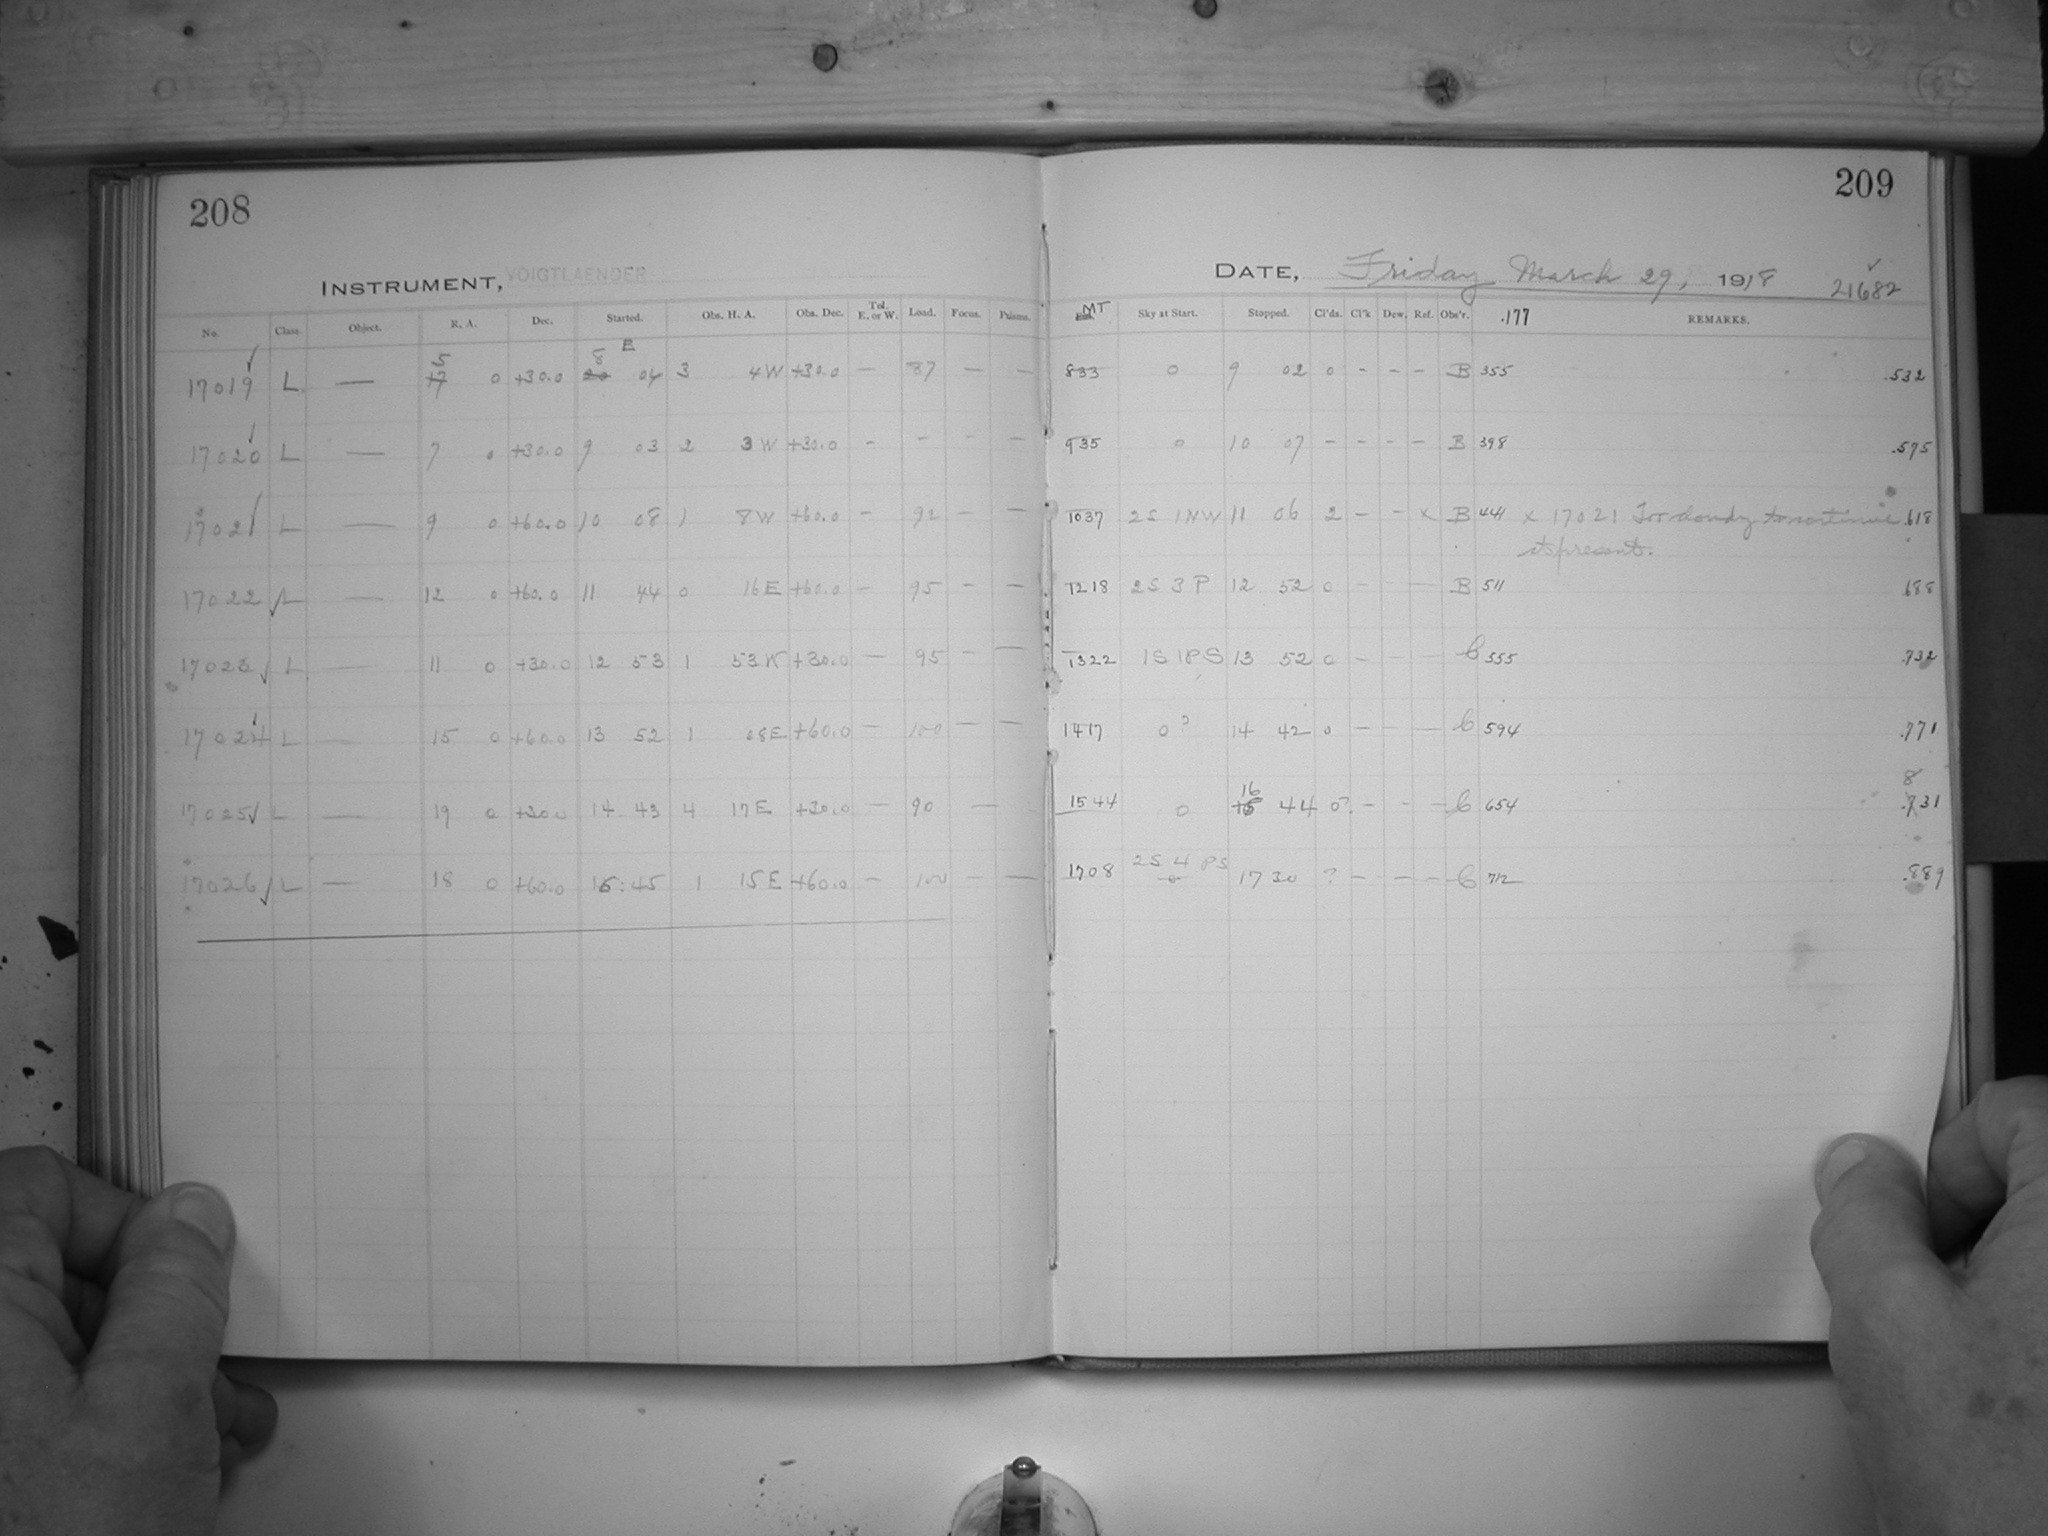 208
209
INSTRUMENT, VOIGTLAENDER
DATE, Friday March 29, 1918 21682
No. Class. Object. R. A. Dec. Started. Obs. H. A. Obs. Dec. Tel. E. or W. Load. Focus. Prisms. MT Sky at Start. Stopped. Cl'ds. Cl'k Dew. Ref. Obs'r. .177 REMARKS.
5 8 E
17019 L — 17 0 +30.0 20 04 3 4 W +30.0 — 87 — — 833 0 9 02 0 - - - B 355 .532
17020 L — 7 0 +30.0 9 03 2 3 W +30.0 - - - — 935 0 10 07 - - - - B 398 .575
17021 L — 9 0 +60.0 10 08 1 8 W +60.0 - 92 - — 1037 2S 1NW 11 06 2 - - x B 441 x 17021 Too cloudy to continue .618
at present.
17022 L — 12 0 +60.0 11 44 0 16 E +60.0 — 95 - — 1218 2S 3 P 12 52 0 - - — B 511 .688
17023 L — 11 0 +30.0 12 53 1 53 +30.0 — 95 - — 1322 1S 1PS 13 52 0 - - - C 555 .732
17024 L — 15 0 +60.0 13 52 1 08E +60.0 — 100 — — 1417 0? 14 42 0 - - — C 594 .771
16 8
17025 L — 19 0 +30.0 14 43 4 17E +30.0 — 90 — 1544 0 15 44 0? - - — C 654 .731
17026 L — 18 0 +60.0 15:45 1 15 E +60.0 — 100 - — 1708 2S 4 PS 17 30 ? - - - C 712 .889